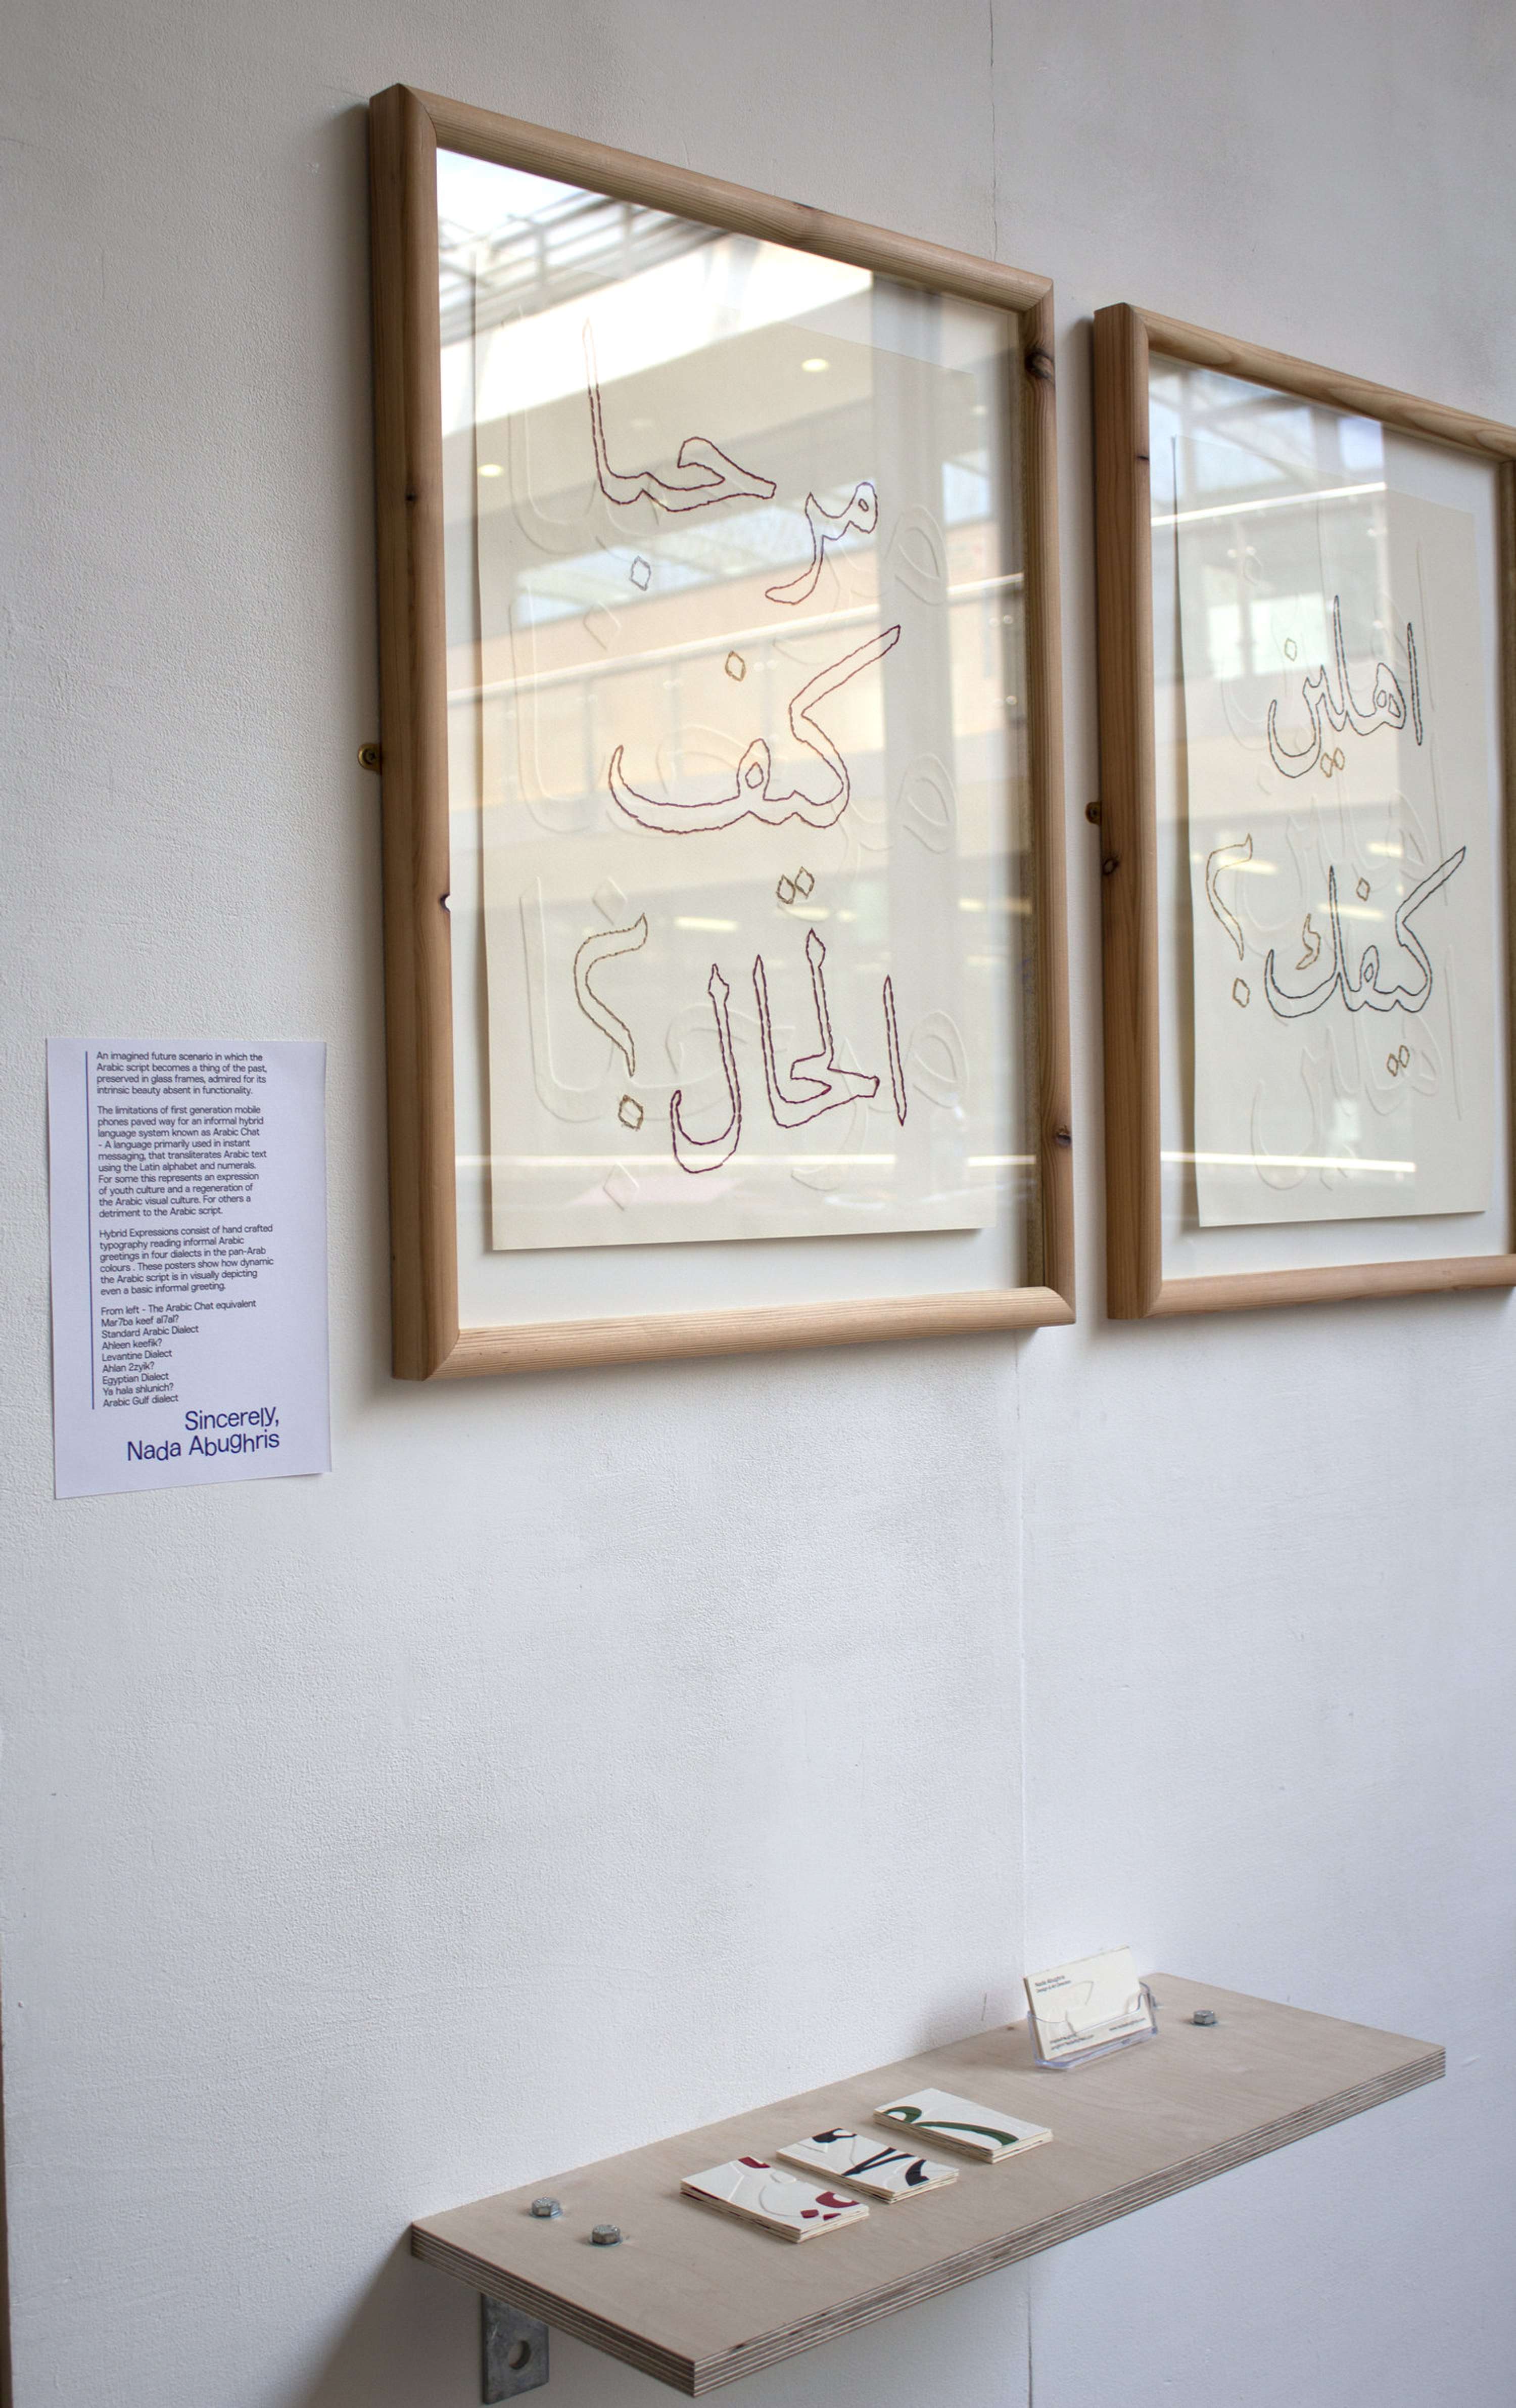 مرحبا
كيف
الحال؟
اهلين
كيفك؟
An imagined future scenario in which the
Arabic script becomes a thing of the past,
preserved in glass frames, admired for its
intrinsic beauty absent in functionality.
The limitations of first generation mobile
phones paved way for an informal hybrid
language system known as Arabic Chat
- A language primarily used in instant
messaging, that transliterates Arabic text
using the Latin alphabet and numerals.
For some this represents an expression
of youth culture and a regeneration of
the Arabic visual culture. For others a
detriment to the Arabic script.
Hybrid Expressions consist of hand crafted
typography reading informal Arabic
greetings in four dialects in the pan-Arab
colours . These posters show how dynamic
the Arabic script is in visually depicting
even a basic informal greeting.
From left - The Arabic Chat equivalent
Mar7ba keef al7al?
Standard Arabic Dialect
Ahleen keefik?
Levantine Dialect
Ahlan 2zyik?
Egyptian Dialect
Ya hala shlunich?
Arabic Gulf dialect
Sincerely,
Nada Abughris
Nada Abughris